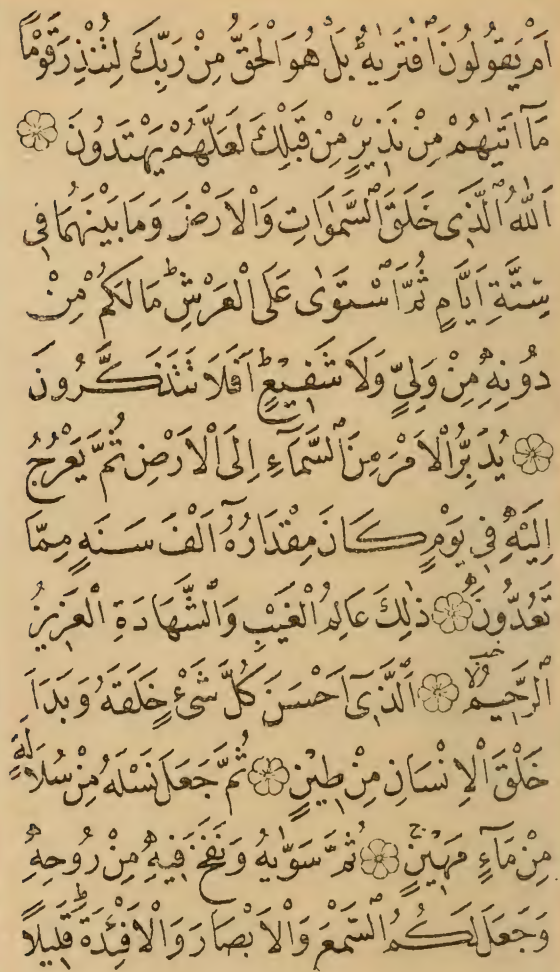 اَمْ يَقُولُونَ ٱفْتَرٰيهُ بَلْ هُوَ الْحَقُّ مِنْ رَبِّكَ لِتُنْذِرَ قَوْمًا
مَآ اَتٰيهُمْ مِنْ نَذِيرٍ مِنْ قَبْلِكَ لَعَلَّهُمْ يَهْتَدُونَ
اَللّٰهُ ٱلَّذِى خَلَقَ ٱلسَّمٰوَاتِ وَالْاَرْضَ وَمَا بَيْنَهُمَا فِى
سِتَّةِ اَيَّامٍ ثُمَّ ٱسْتَوٰى عَلَى الْعَرْشِ ط مَالَكُمْ مِنْ
دُونِهِ مِنْ وَلِىٍّ وَلَا شَفِيعٍ ط اَفَلَا تَتَذَكَّرُونَ
يُدَبِّرُ الْاَمْرَ مِنَ ٱلسَّمَآءِ اِلَى الْاَرْضِ ثُمَّ يَعْرُجُ
اِلَيْهِ فِى يَوْمٍ كَانَ مِقْدَارُهُٓ اَلْفَ سَنَةٍ مِمَّا
تَعُدُّونَ ذٰلِكَ عَالِمُ الْغَيْبِ وَٱلشَّهَادَةِ الْعَزِيزُ
ٱلرَّحِيمُ لا ٱَلَّذِىٓ اَحْسَنَ كُلَّ شَىْءٍ خَلَقَهُ وَبَدَاَ
خَلْقَ الْاِنْسَانِ مِنْ طِينٍ ثُمَّ جَعَلَ نَسْلَهُ مِنْ سُلَالَةٍ
مِنْ مَآءٍ مَهِينٍ ج ثُمَّ سَوّٰيهُ وَنَفَخَ فِيهِ مِنْ رُوحِهِ
وَجَعَلَ لَكُمُ ٱلسَّمْعَ وَالْاَبْصَارَ وَالْاَفْئِدَةَ ط قَلِيلًا